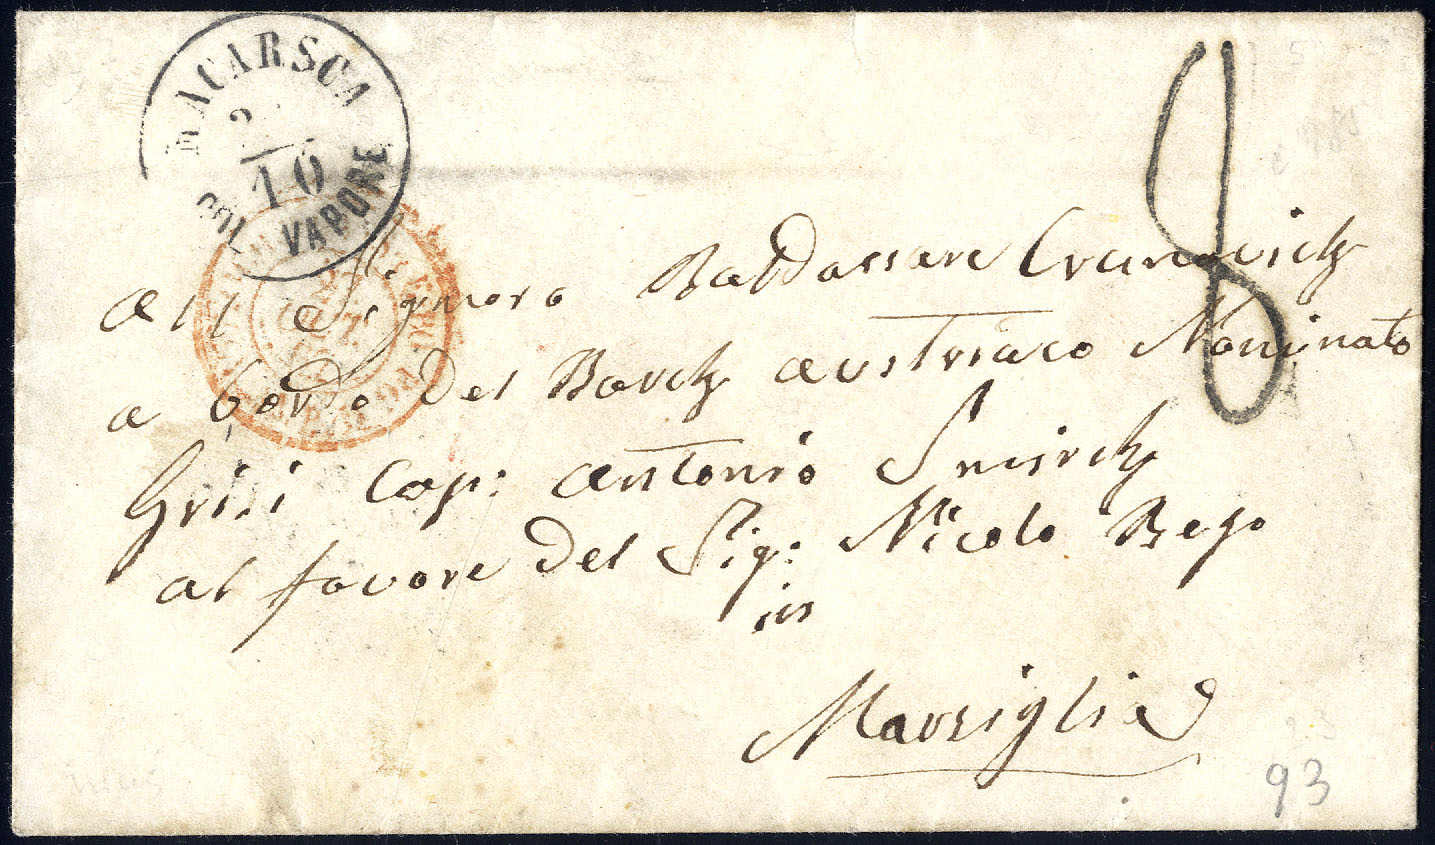 MACARSCA
2
10
COL VAPORE
8
All Signore Baldassare
a bordo del Barck austriaco Nominato
Grisi Cap: Antonio
al favore del Sig: Nicolo Bego
in
Marsiglia
93